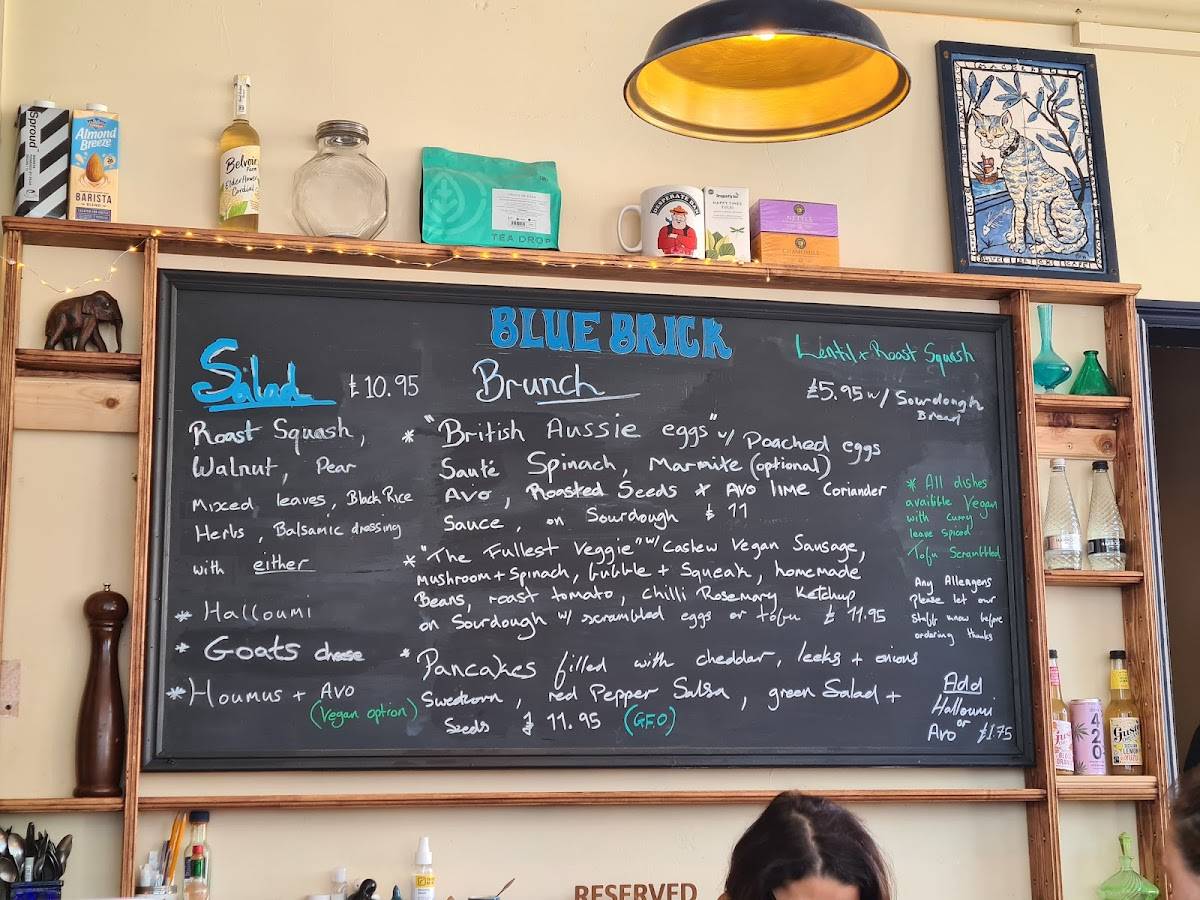 Sproud
Almond
Breeze
BARISTA
BLEND
Belvoir
Farm
Elderflower
Cordial
TEA DROP
DESPERATE DAN
HAPPY TIMES
NETTLE
CHAMOMILE
BLUE BRICK
Salad £10.95
Roast Squash,
Walnut, Pear
Mixed leaves, Black Rice
Herbs, Balsamic dressing
with either
* Halloumi
* Goats cheese
* Houmus + Avo
(Vegan option)
Brunch
* "British Aussie eggs" w/ Poached eggs
Sauté Spinach, Marmite (optional)
Avo, Roasted Seeds + Avo lime Coriander
Sauce, on Sourdough £11
* "The Fullest Veggie" w/ Cashew Vegan Sausage,
Mushroom + Spinach, bubble + Squeak, homemade
Beans, roast tomato, Chilli Rosemary Ketchup
on Sourdough w/ scrambled eggs or tofu £11.95
* Pancakes filled with cheddar, leeks + onions
Sweetcorn, red Pepper Salsa, green Salad +
Seeds £11.95 (GFO)
Lentil + Roast Squash
£5.95 w/ Sourdough
Bread
* All dishes
availble Vegan
with curry
leave spiced
Tofu Scrambbled
Any Allergens
Please let our
Staff know before
ordering thanks
Add
Halloumi
or
Avo £1.75
420
Gusto
RESERVED